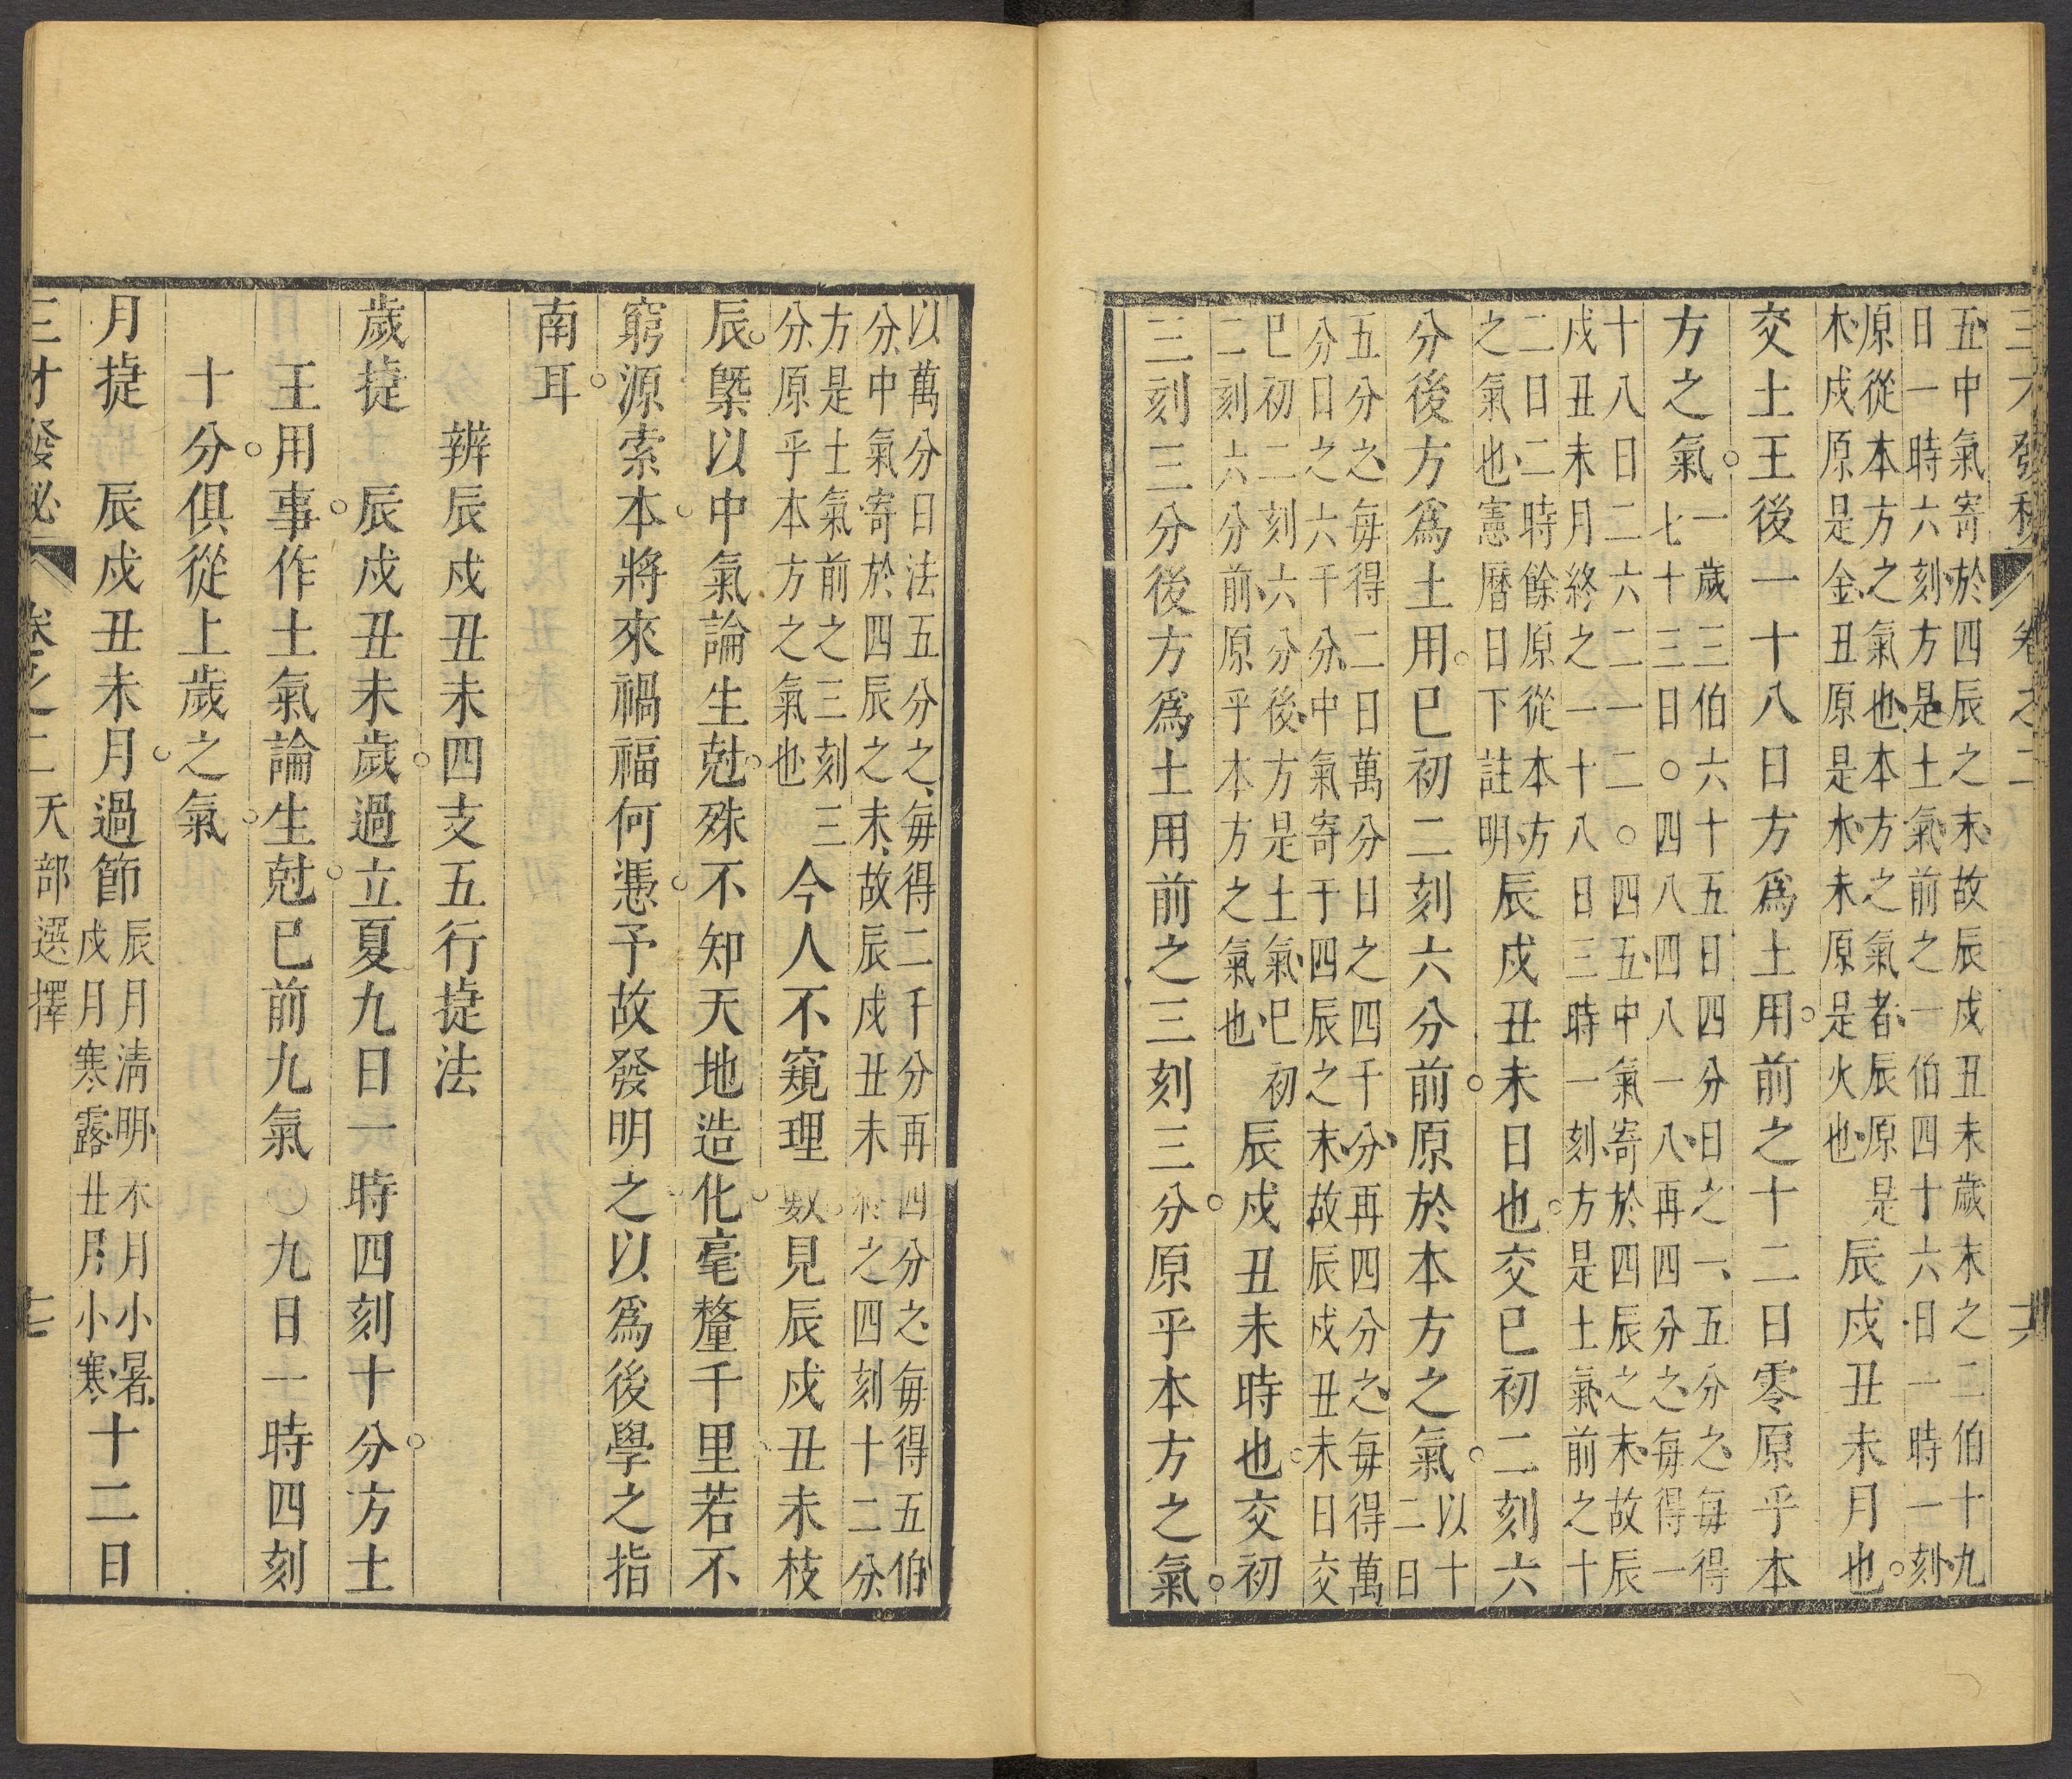 三才發秘 卷之二 十六
五中氣寄於四辰之末故辰戌丑未歲末之二伯十九
日一時六刻方是土氣前之一伯四十六日一時一刻
原從本方之氣也本方之氣者辰原是
木戌原是金丑原是水未原是火也
辰戌丑未月也
交土王後一十八日方爲土用前之十二日零原乎本
方之氣
一歲三伯六十五日四分日之一五分之每得
七十三日○四八四八一八再四分之每得一
十八日二六二一二○四五中氣寄於四辰之末故辰
戌丑未月終之一十八日三時一刻方是土氣前之十
二日二時餘原從本方
之氣也憲曆日下註明
辰戌丑未日也交巳初二刻六
分後方爲土用巳初二刻六分前原於本方之氣
以十
二日
五分分之每得二日萬分日之四千分再四分之每得萬
分日之六千分中氣寄于四辰之末故辰戌丑未日交
巳初二刻六分後方是土氣巳初
二刻六分前原乎本方之氣也
辰戌丑未時也交初
三刻三分後方爲土用前之三刻三分原乎本方之氣
以萬分分日法五分分之每得二千分再四分之每得五伯
分中氣寄於四辰之末故辰戌丑未終之四刻十二分
方是土氣前之三刻三
分原乎本方之氣也
今人不窺理數見辰戌丑未枝
辰槩以中氣論生尅殊不知天地造化毫釐千里若不
窮源索本將來禍福何慿予故發明之以爲後學之指
南耳
辨辰戌丑未四支五行捷法
歲捷 辰戌丑未歲過立夏九日一時四刻十分方土
王用事作土氣論生尅巳前九氣○九日一時四刻
十分俱從上歲之氣
月捷 辰戌丑未月過節
辰月清明未月小暑
戌月寒露丑月小寒
十二日
三才發秘 卷之二 天部選擇 十七